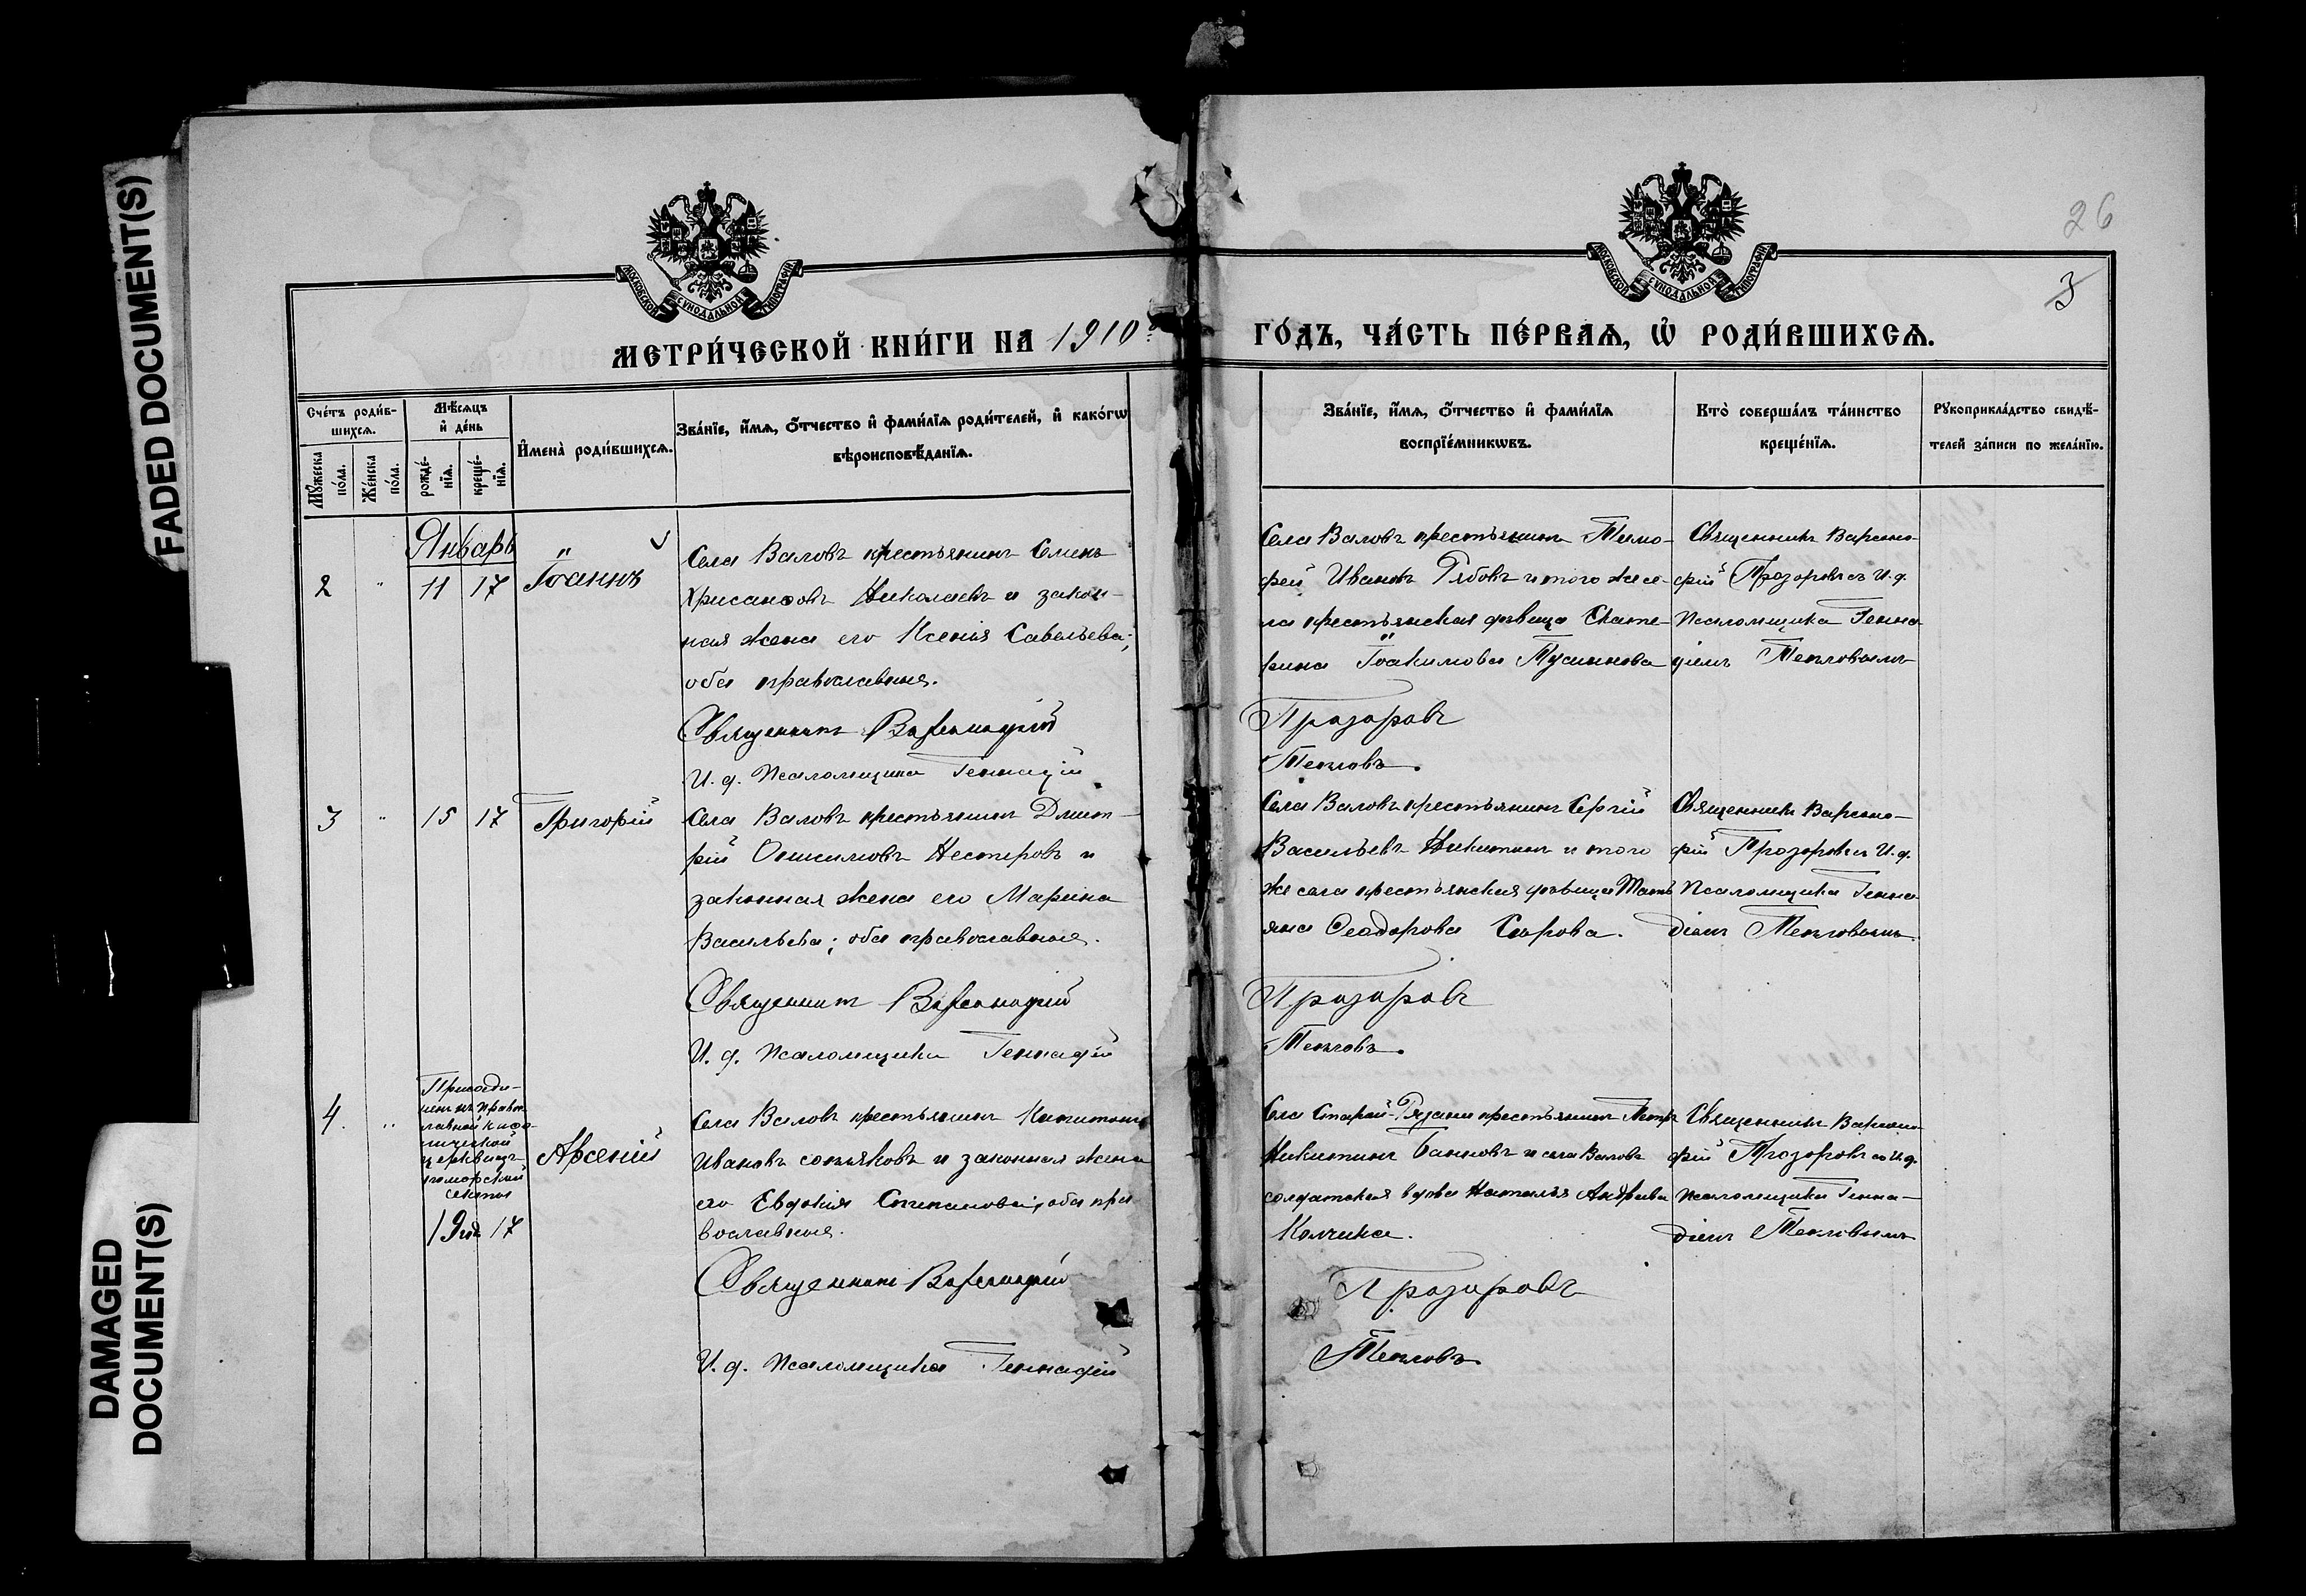 FADED DOCUMENT(S)
DAMAGED
DOCUMENT(S)
26
3
МОСКОВСКОЙ СУНОДАЛЬНОЙ ТИПОГРАФІИ
МОСКОВСКОЙ СУНОДАЛЬНОЙ ТИПОГРАФІИ
МЕТРИ́ЧЕСКОЙ КНИ́ГИ НА 1910
ГО́ДЪ, ЧА́СТЬ ПЕ́РВАѦ, Ѡ҆ РОДИ́ВШИХСѦ.
Сче́тъ роди́в-
шихсѧ.
Мꙋ́жеска
по́ла.
Же́нска
по́ла.
Мѣ́сѧцъ
и҆ де́нь
рожде́-
нїѧ.
креще́-
нїѧ.
И҆мена̀ роди́вшихсѧ.
Зва́нїе, и҆́мѧ, ѻ҆́тчество и҆ фами́лїѧ роди́телей, и҆ како́гѡ
вѣроисповѣ́данїѧ.
Зва́нїе, и҆́мѧ, ѻ҆́тчество и҆ фами́лїѧ
воспрїе́мникѡвъ.
Кто̀ соверша́лъ та́инство
креще́нїѧ.
Рꙋкоприкла́дство свидѣ́-
телей за́писи по жела́нїю.
Январь
2 " 11 17 Іоаннъ
Села Валовъ крестьянинъ Семенъ
Хрисанѳовъ Николаевъ и закон-
ная жена его Ксенія Савельева;
оба православные.
Священникъ Варсанофій
И. д. Псаломщика Геннадій
Села Валовъ крестьянинъ Тимо-
фей Ивановъ Рябовъ и того же се-
ла крестьянская дѣвица Екате-
рина Іоакимова
Прозоровъ
Тепловъ.
Священникъ Варсано-
фій Прозоровъ съ И. д.
Псаломщика Генна-
діемъ Тепловымъ
3 " 15 17 Григорій
Села Валовъ крестьянинъ Димит-
рій Онисимовъ Нестеровъ и
законная жена его Марина
Васильева; оба православные.
Священникъ Варсанофій
И. д. Псаломщика Геннадій
Села Валовъ крестьянинъ Сергій
Васильевъ Никитинъ и того
же села крестьянская дѣвица Тать-
яна Ѳеодорова Сырова.
Прозоровъ
Тепловъ.
Священникъ Варсано-
фій Прозоровъ съ И. д.
Псаломщика Генна-
діемъ Тепловымъ.
4. " Присоди-
ненъ къ право-
славной каѳо-
лической
церкви изъ
поморской
секты
19 17
Арсеній
Села Валовъ крестьянинъ Капитонъ
Ивановъ и законная жена
его Евдокія Степанова; оба пра-
вославные.
Священникъ Варсанофій
И. д. Псаломщика Геннадій
Села Старой-Рязани крестьянинъ Петръ
Никитинъ и села Валовъ
солдатская вдова Наталья Андреева
Колчина.
Прозоровъ
Тепловъ.
Священникъ Варсано-
фій Прозоровъ съ И. д.
псаломщика Генна-
діемъ Тепловымъ